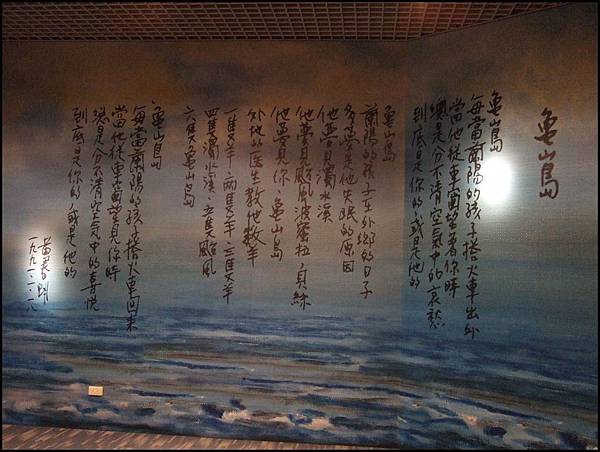 龜山島
龜山島
每當蘭陽的孩子搭火車出外
當他從車窗望著你時
總是分不清空氣中的哀愁
到底是你的，或是他的
龜山島
蘭陽的孩子在外鄉的日子
多夢是他失眠的原因
他夢見濁水溪
他夢見颱風波蜜拉，貝絲
他夢見你，龜山島
外地的医生教他數羊
一隻羊，兩隻羊，三隻羊
四隻濁水溪，五隻颱風
六隻龜山島
龜山島
每當蘭陽的孩子搭火車回來
當他從車窗望見你時
總是分不清空氣中的喜悅
到底是你的，或是他的
黃春明